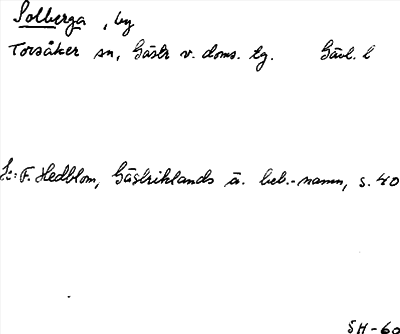 Solberga, by
Torsåker sn, Gästr v. doms. lg. Gävl. l
Lt: F. Hedblom, Gästriklands ä. beb.-namn, s. 40
SH-60